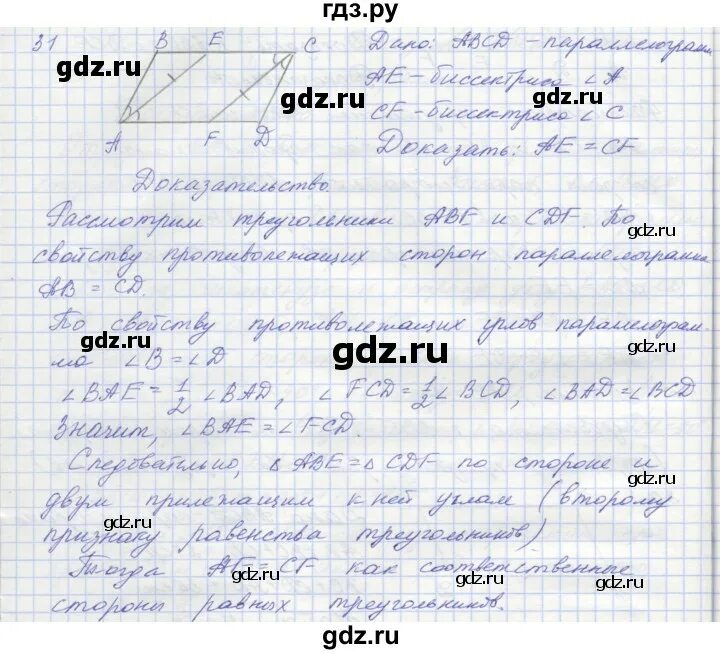 гдз.ру
31
B E C
A F D
Дано: ABCD - параллелограмм
AE - биссектриса ∠A
CF - биссектриса ∠C
Доказать: AE = CF
Доказательство.
Рассмотрим треугольники ABE и CDF. По
свойству противолежащих сторон параллелограмма
AB = CD.
По свойству противолежащих углов параллелограм-
ма ∠B = ∠D
∠BAE = 1/2 ∠BAD, ∠FCD = 1/2 ∠BCD, ∠BAD = ∠BCD
Значит, ∠BAE = ∠FCD.
Следовательно, △ABE = △CDF по стороне и
двум прилежащим к ней углам (второму
признаку равенства треугольников)
Тогда AE = CF как соответственные
стороны равных треугольников.
gdz.ru
gdz.ru
gdz.ru
gdz.ru
gdz.ru
gdz.ru
gdz.ru
gdz.ru
gdz.ru
gdz.ru
gdz.ru
gdz.ru
gdz.ru